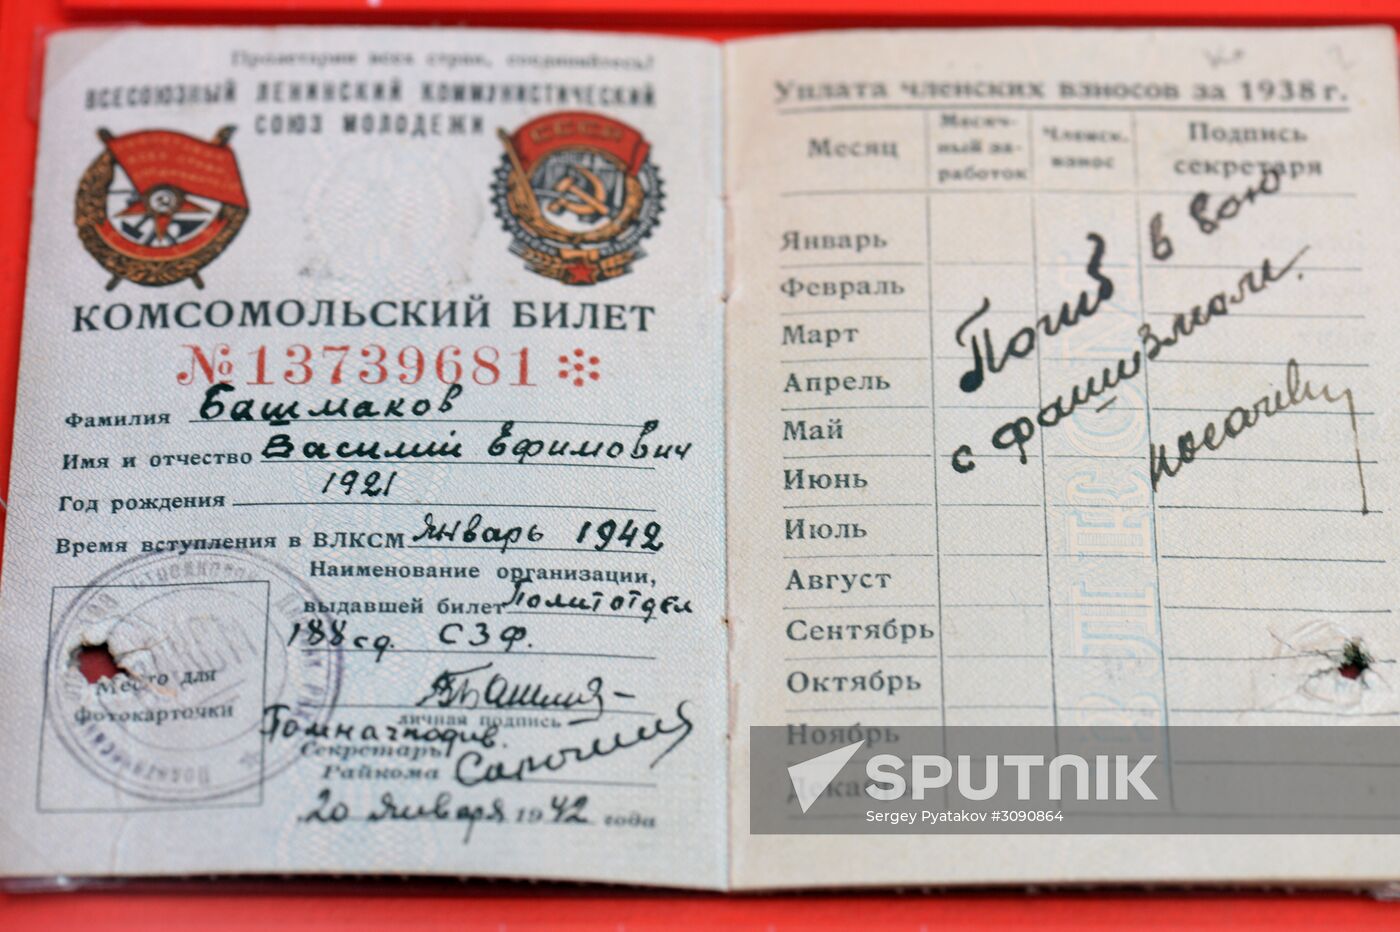 Пролетарии всех стран, соединяйтесь!
ВСЕСОЮЗНЫЙ ЛЕНИНСКИЙ КОММУНИСТИЧЕСКИЙ
СОЮЗ МОЛОДЕЖИ
СССР
КОМСОМОЛЬСКИЙ БИЛЕТ
№13739681
Фамилия Башмаков
Имя и отчество Василий Ефимович
Год рождения 1921
Время вступления в ВЛКСМ Январь 1942
Наименование организации,
выдавшей билет Политотдел
188 сд. СЗФ.
личная подпись
Место для
фотокарточки
Помначподив.
Секретарь
Райкома
20 Января 1942 года
Уплата членских взносов за 1938 г.
Месяц
Месяч-
ный за-
работок
Членск.
взнос
Подпись
секретаря
Январь
Февраль
Март
Апрель
Май
Июнь
Июль
Август
Сентябрь
Октябрь
Ноябрь
Декабрь
Погиб в бою
с фашизмом.
ВЛКСМ
SPUTNIK
Sergey Pyatakov #3090864